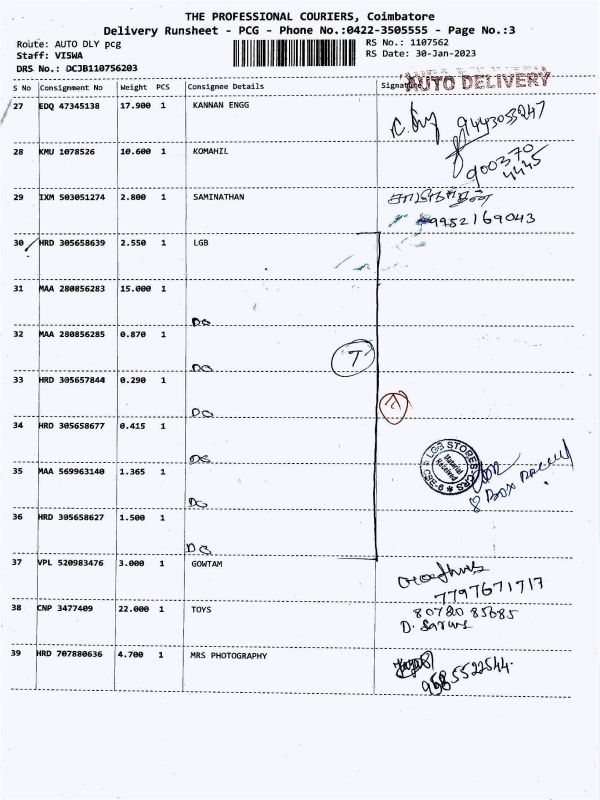 THE PROFESSIONAL COURIERS, Coimbatore
Delivery Runsheet - PCG - Phone No.:0422-3505555 - Page No.:3
Route: AUTO DLY pcg RS No.: 1107562
Staff: VISWA RS Date: 30-Jan-2023
DRS No.: DCJB110756203
AUTO DELIVERY
S No Consignment No Weight PCS Consignee Details Signature
27 EDQ 47345138 17.900 1 KANNAN ENGG
9443053247
28 KMU 1078526 10.600 1 KOMAHIL
900370
4445
29 IXM 503051274 2.800 1 SAMINATHAN
சாமிநாதன்
9952169043
30 HRD 305658639 2.550 1 LGB
31 MAA 280856283 15.000 1
DO
32 MAA 280856285 0.870 1
DO
7
33 HRD 305657844 0.290 1
DO
7
34 HRD 305658677 0.415 1
DO
LGB STORES-CRS
CBE-6
Material
Received
35 MAA 569963140 1.365 1
8 Box
DO
36 HRD 305658627 1.500 1
DO
37 VPL 520983476 3.000 1 GOWTAM
7797671717
38 CNP 3477409 22.000 1 TOYS
80780 85685
39 HRD 707880636 4.700 1 MRS PHOTOGRAPHY
9585522544